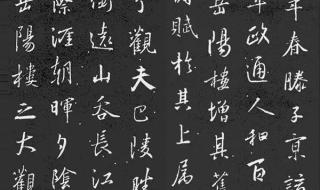 年春滕子京謫
年政通人和百
岳陽樓增其舊
詩賦於其上属
予觀夫巴陵勝
銜遠山吞長江
際涯朝暉夕陰
岳陽樓之大觀